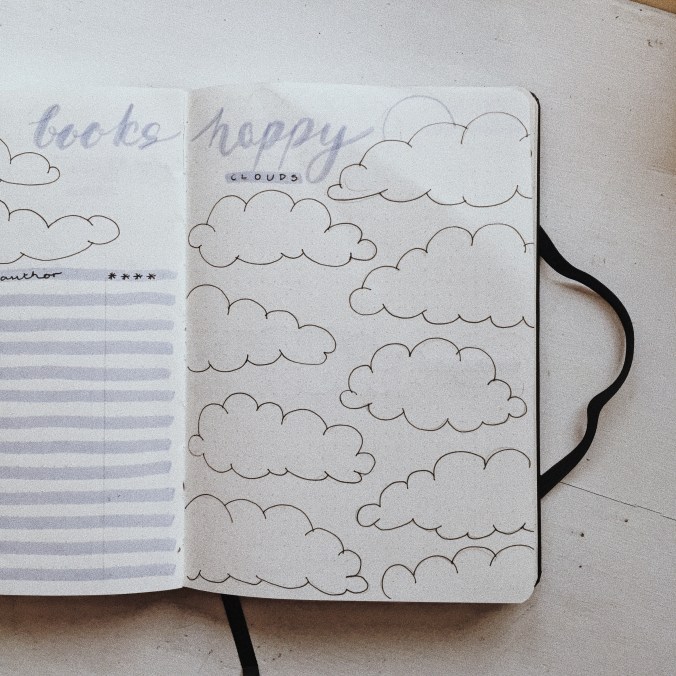 books
author ****
happy
CLOUDS